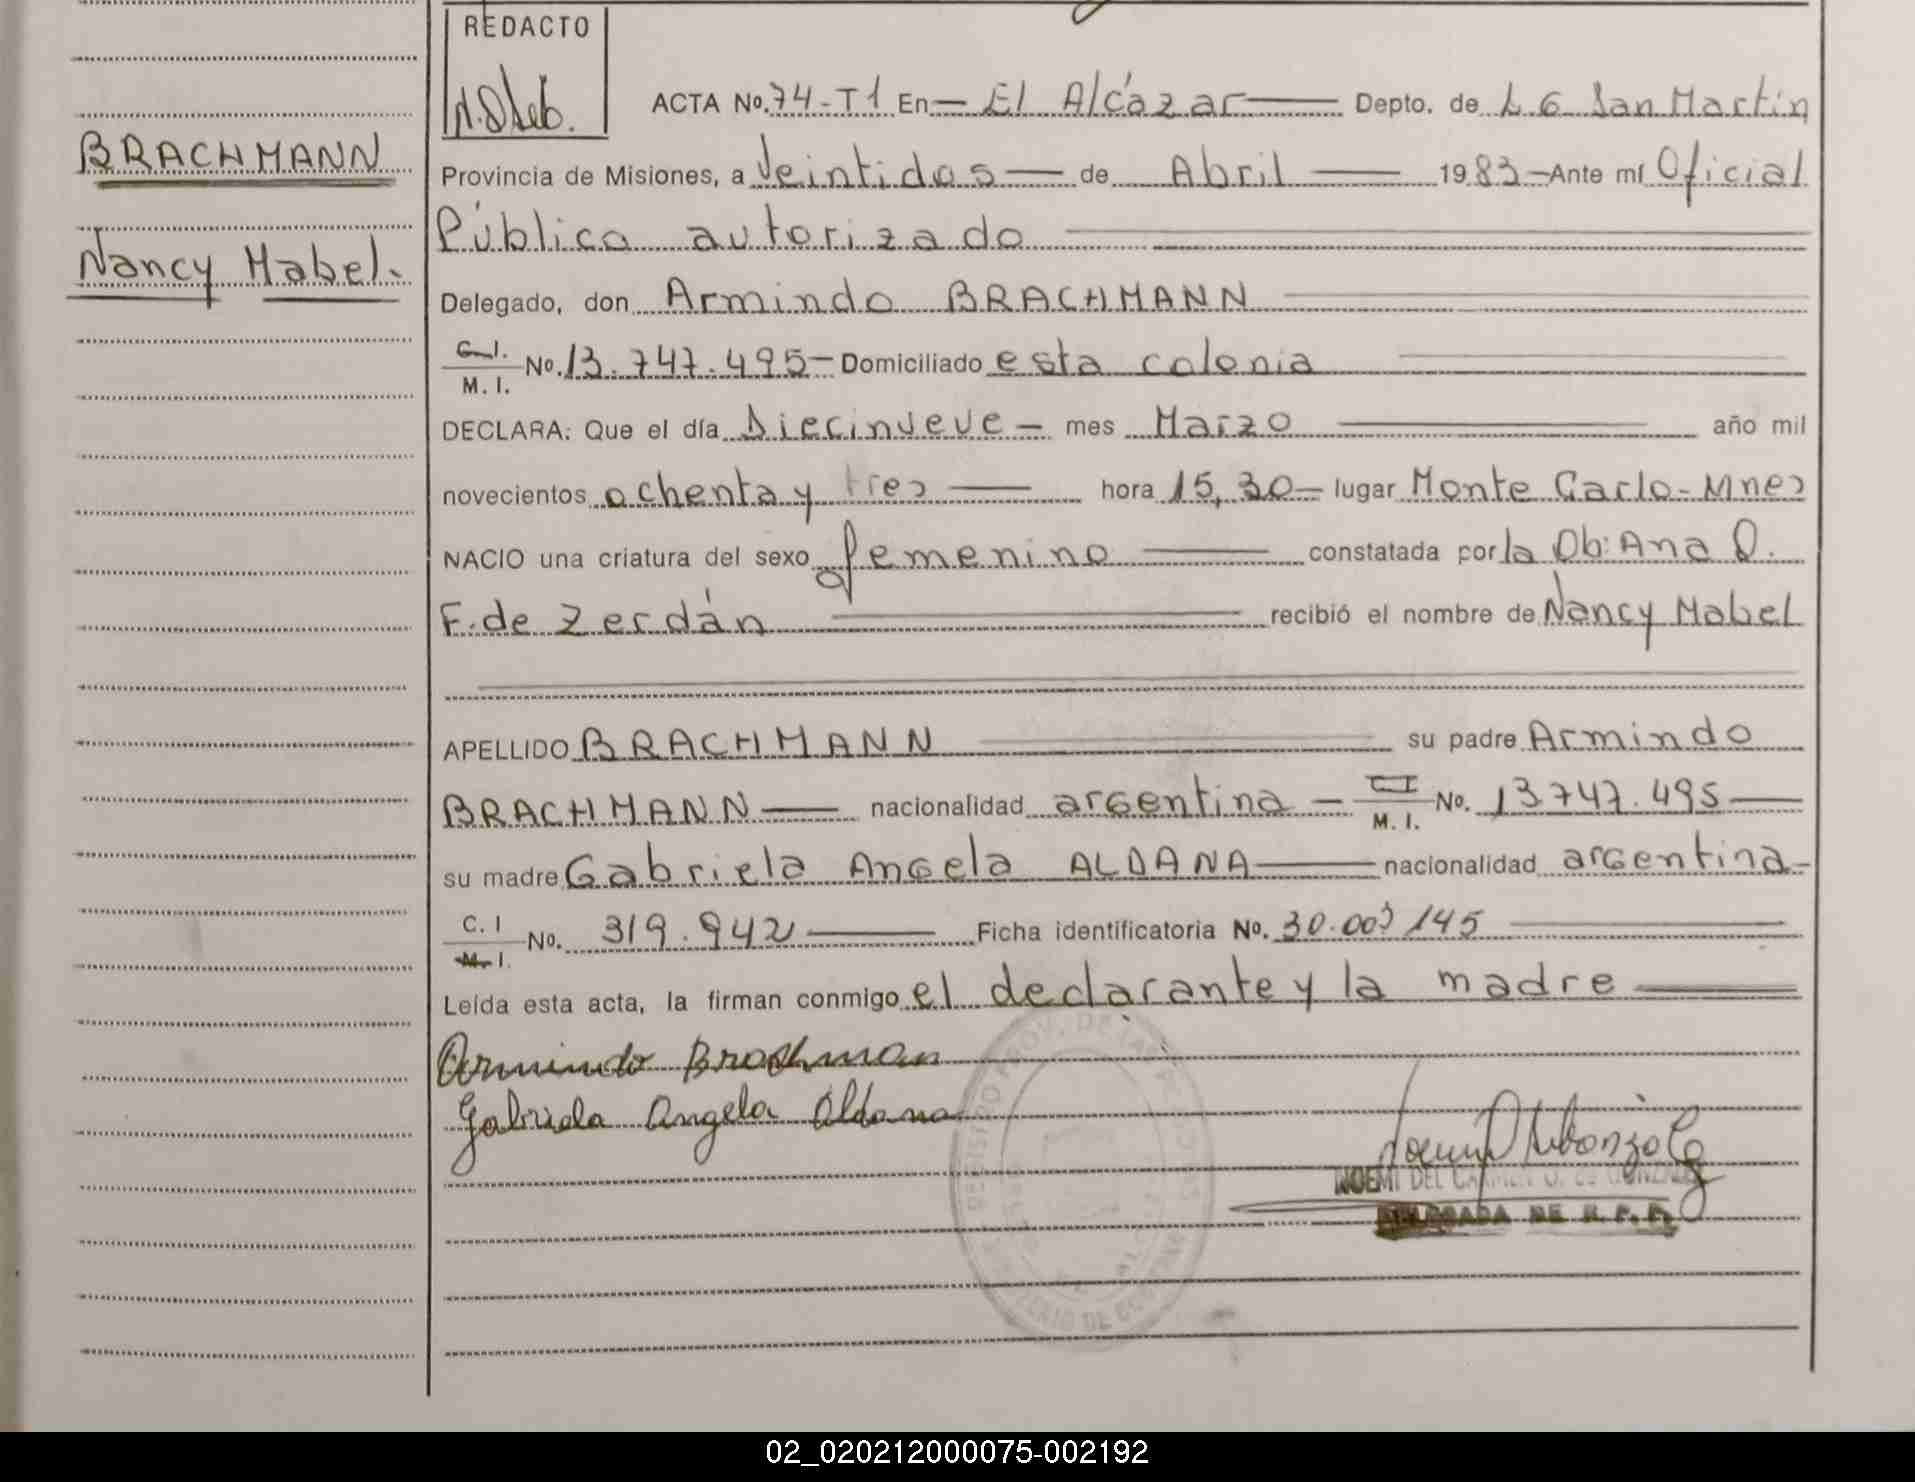 REDACTO
ACTA No. 74-T1 En — El Alcázar — Depto. de L G San Martin
BRACHMANN
Provincia de Misiones, a Veintidos — de Abril — 1983 — Ante mí Oficial
Público autorizado
Nancy Mabel.
Delegado, don Armindo BRACHMANN
C.I. No. 13.747.495 — Domiciliado esta colonia
M. I.
DECLARA: Que el día Diecinueve — mes Marzo — año mil
novecientos ochenta y tres — hora 15,30 — lugar Monte Carlo - Mnes
NACIO una criatura del sexo femenino — constatada por la Ob: Ana O.
F. de Zerdán — recibió el nombre de Nancy Mabel
APELLIDO BRACHMANN — su padre Armindo
BRACHMANN — nacionalidad argentina — CI No. 13747.495 —
M. I.
su madre Gabriela Angela ALDANA — nacionalidad argentina -
C. I No. 319.942 — Ficha identificatoria No. 30.003 145
M. I.
Leída esta acta, la firman conmigo el declarante y la madre
Armindo Brachman
Gabriela Angela Aldana
NOEMI DEL CARMEN O. DE GONZALEZ
DELEGADA DE R. P. P.
02_020212000075-002192